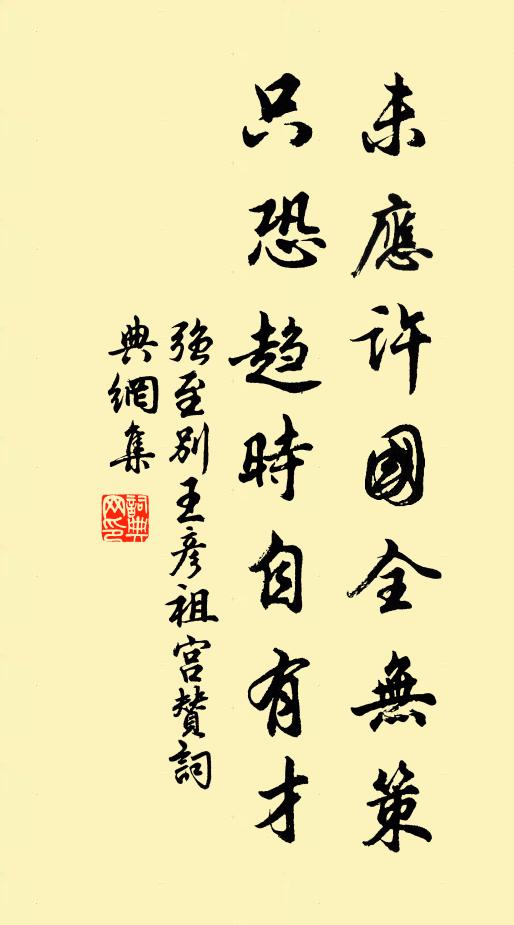 未應許國全無策
只恐趨時自有才
強至別王彥祖宮贊詞
典網集
詞典网印